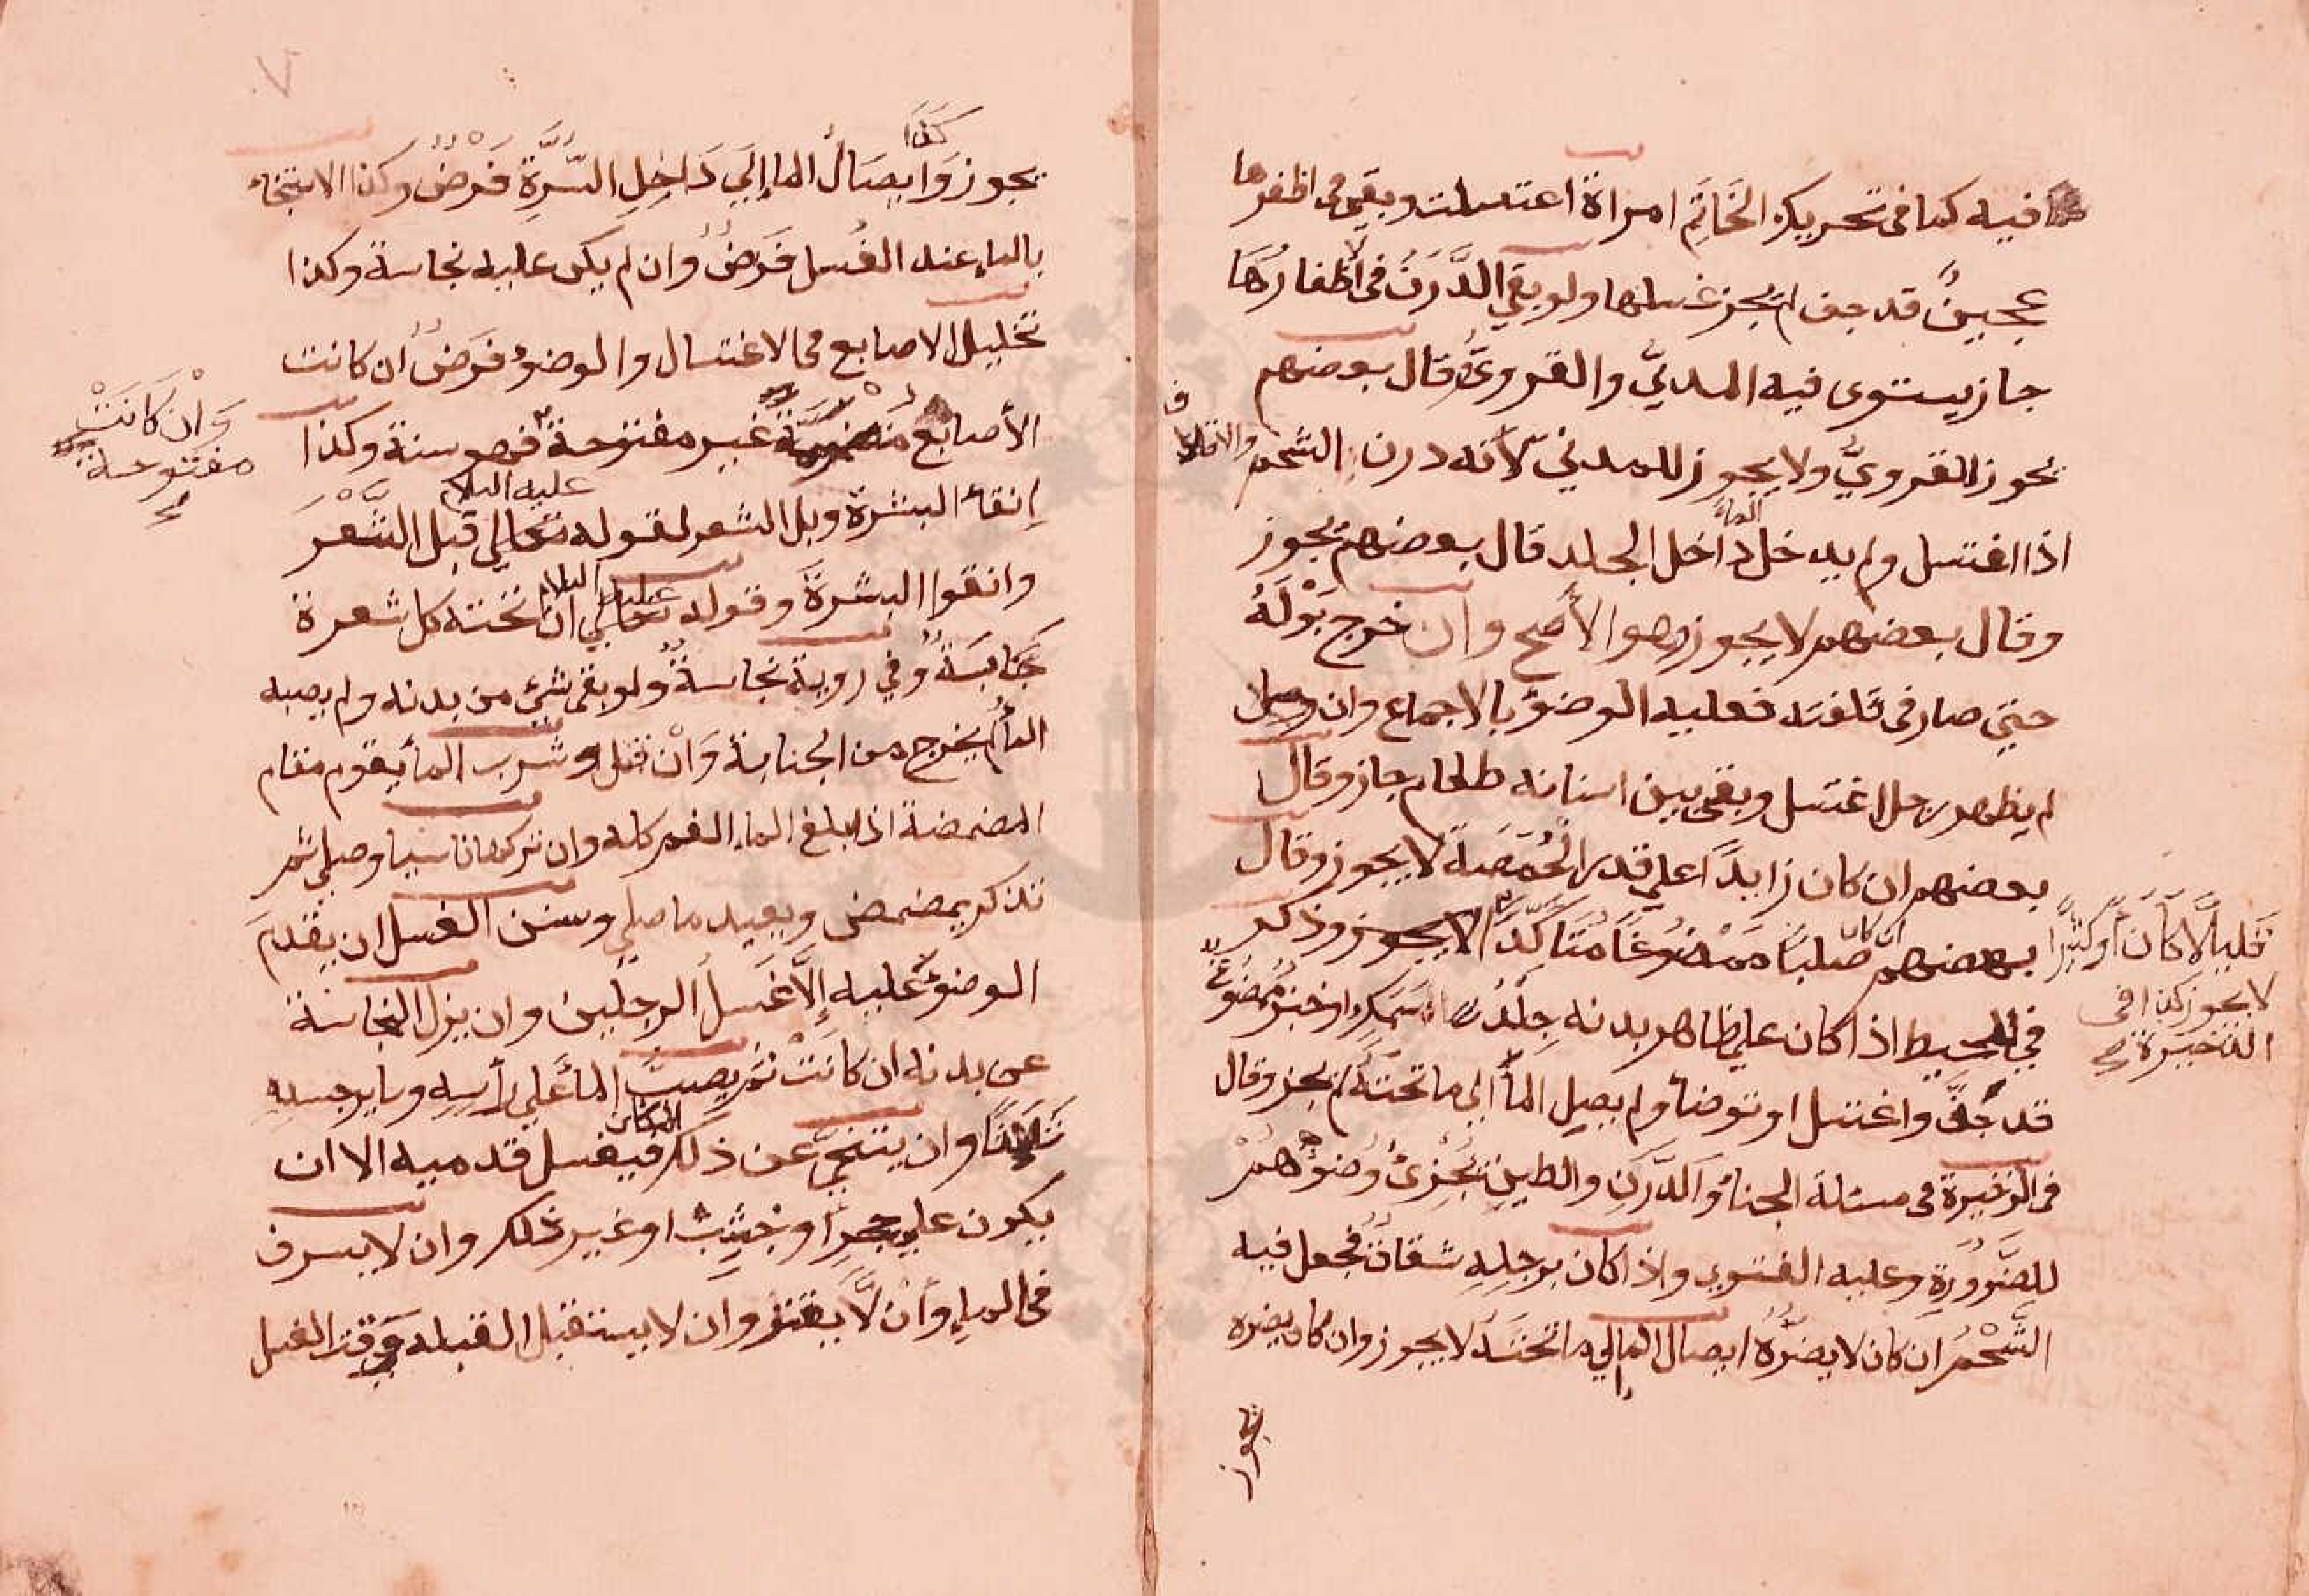 فيه كما فى تحريك الخَاتِمِ امراة اغتسلت وبقى فى اظفرها
عجينٌ قد جف لم يجز غسلها ولو بقي الدَّرَنُ فى أظفارُهَا
جاز يستوى فيه المدنيّ والقرويُّ وقال بعضهم
يجوز القرويّ ولا يجوز للمدنيّ لأنه درن الشحم والاقلف
اذا اغتسل ولم يدخل الماءُ داخل الجلد قال بعضهم يجوز
وقال بعضهم لا يجوز وهو الأصح وان خرج بَوْلَهُ
حتي صار فى قلفته فعليه الوضوُ بالاجماع وان
لم يظهر رجل اغتسل وبقى بين اسنانه طعام جاز وقال
بعضهم ان كان زايدًا على قدر الحُمّصَةِ لا يجوز وقال
بعضهم ان كان صلبًا ممضوغًا متَاكّدًا لا يجوز وذكر
قَليلًا كَانَ أوكثيرًا
لا يجوز كذا فى
الذخيرة صح
في المحيط اذا كان علي ظاهر بدنه جِلْدُ سَمَكٍ او خبز مُمْضُوغٌ
قد جُفَّ واغتسل او توضأ ولم يصل المأ الي ما تحتَهُ لم يجز وقال
فى الذخيرة فى مسئلة الحناءُ وَالدَّرَنِ والطينِ يُجْزِئُ وُضوُهُمْ
للضَّرُورَةِ وعليه الفتوي واذا كان برجِلِهِ شقاقٌ فجعل فيه
الشَّحْمُ ان كان لا يضرُّهُ ايصال الما إلي ما تحتَهُ لا يجوز وان كان يضره
يجوز
يجوز وَايصَالُ الماإ إلَي دَاخِلِ السُّرَّةِ فَرْضٌ وكذا الاستنجاء
كذا
بالماءِ عند الغُسل فَرَضٌ وان لم يكن عليه نجاسة وكذا
تخليل الاصابع فى الاغتسال والوضوُ فرَضٌ ان كانت
الأصابع منضمّةً غير مفتوحة فهو سنة وكذا
وَانْ كَانَتْ
مفتوحة
صح
إنقاُ البشرة وبل الشعر لقوله عليه السلام قبل الشَّعْرَ
وانقوا البشرةَ وقوله عليه السلام ان تحته كل شعرة
جَنَابَسَةٌ وفي روية نجاسةٌ ولو بقى شئ من بدنه ولم يصبه
المأ لم يخرج من الجنابة وَانْ قل وشرب المأ يقوم مقام
المضمضة اذا بلغ الماءِ الفم كله وان تركها ناسيا وصلي ثم
تذكر يمضمض ويعيد ما صلي وسنن الغسل ان يقدمَ
الوضوءَ عليه إلَّا غَسلَ الرجلين وان يزل النجاسة
عن بدنه ان كانَتْ ثم يصبَّ المأ علي رأسِهِ وساير جسدِهِ
ثَلَاثًا وان يتنحّي عن ذلك المكان فيغسل قدميه الا ان
يكون علي حجرٍ او خشبٍ او غير ذلك وان لا يسرف
فى الماءِ وأنْ لَّا يَقترَ وان لا يستقبل القبله وقت الغسل